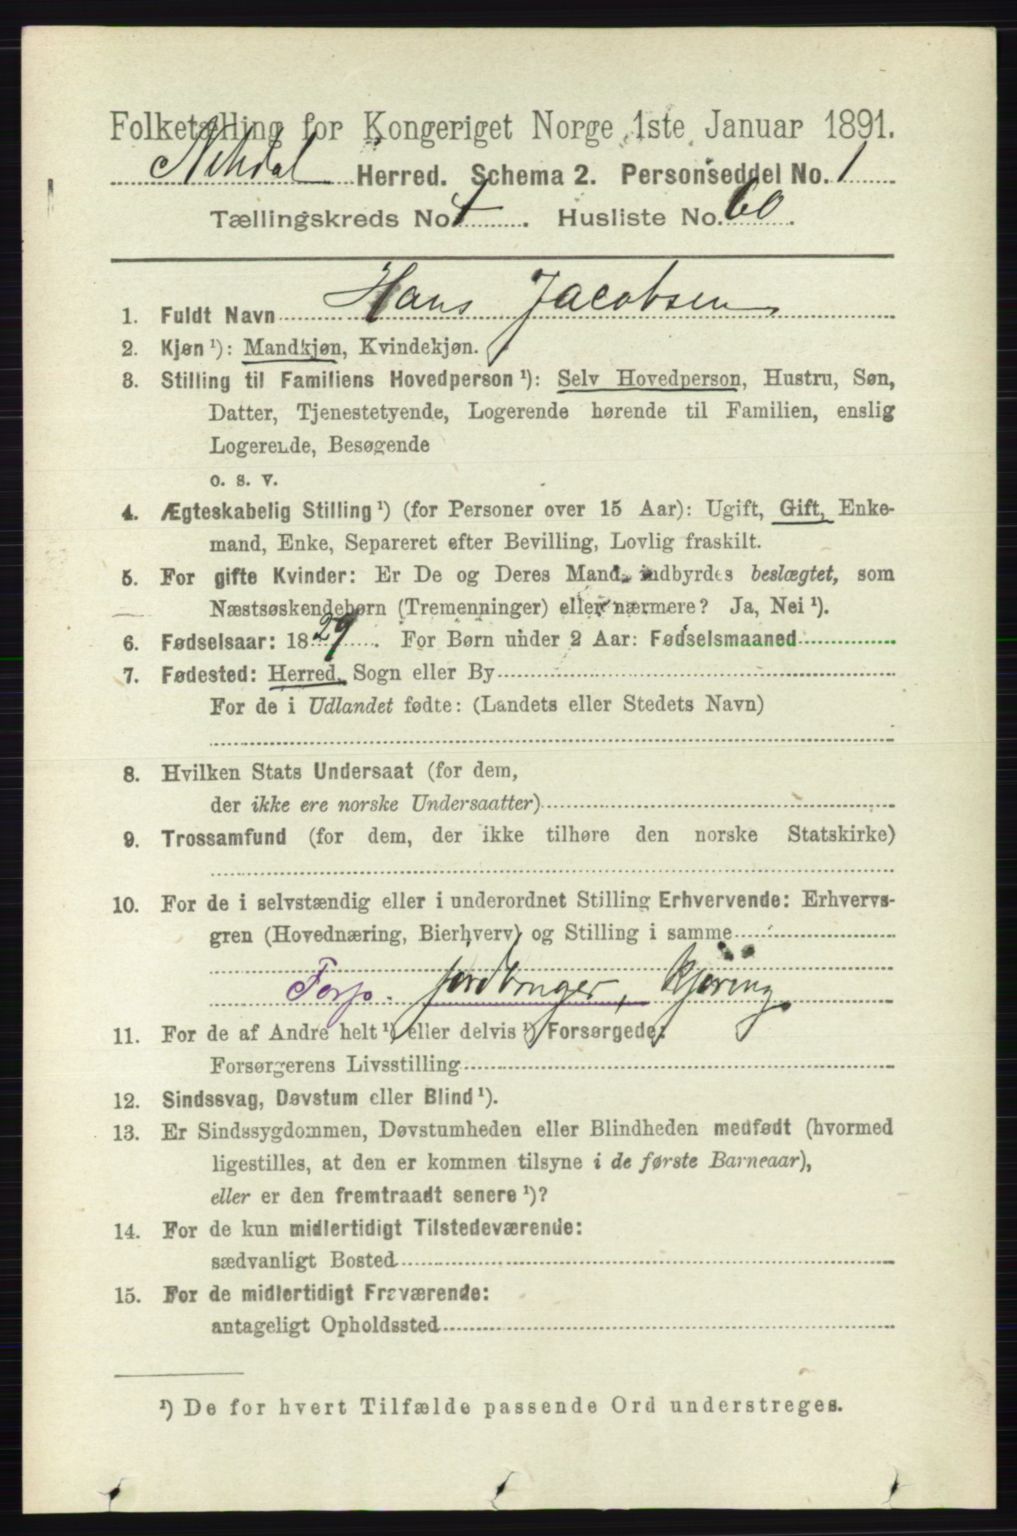 Folketælling for Kongeriget Norge 1ste Januar 1891.
Nitedal Herred. Schema 2. Personseddel No. 1
Tællingskreds No. 4. Husliste No. 60.
1. Fuldt Navn Hans Jacobsen
2. Kjøn ¹): Mandkjøn, Kvindekjøn.
3. Stilling til Familiens Hovedperson ¹): Selv Hovedperson, Hustru, Søn,
Datter, Tjenestetyende, Logerende hørende til Familien, enslig
Logerende, Besøgende
o. s. v.
4. Ægteskabelig Stilling ¹) (for Personer over 15 Aar): Ugift, Gift, Enke-
mand, Enke, Separeret efter Bevilling, Lovlig fraskilt.
5. For gifte Kvinder: Er De og Deres Mand indbyrdes beslægtet, som
Næstsøskendebørn (Tremenninger) eller nærmere? Ja, Nei ¹).
6. Fødselsaar: 1829. For Børn under 2 Aar: Fødselsmaaned
7. Fødested: Herred, Sogn eller By
For de i Udlandet fødte: (Landets eller Stedets Navn)
8. Hvilken Stats Undersaat (for dem,
der ikke ere norske Undersaatter)
9. Trossamfund (for dem, der ikke tilhøre den norske Statskirke)
10. For de i selvstændig eller i underordnet Stilling Erhvervende: Erhvervs-
gren (Hovednæring, Bierhverv) og Stilling i samme
Forp. jordbruger, kjøring
11. For de af Andre helt ¹) eller delvis ¹) Forsørgede:
Forsørgerens Livsstilling
12. Sindssvag, Døvstum eller Blind ¹).
13. Er Sindssygdommen, Døvstumheden eller Blindheden medfødt (hvormed
ligestilles, at den er kommen tilsyne i de første Barneaar),
eller er den fremtraadt senere ¹)?
14. For de kun midlertidigt Tilstedeværende:
sædvanligt Bosted
15. For de midlertidigt Fraværende:
antageligt Opholdssted
¹) De for hvert Tilfælde passende Ord understreges.